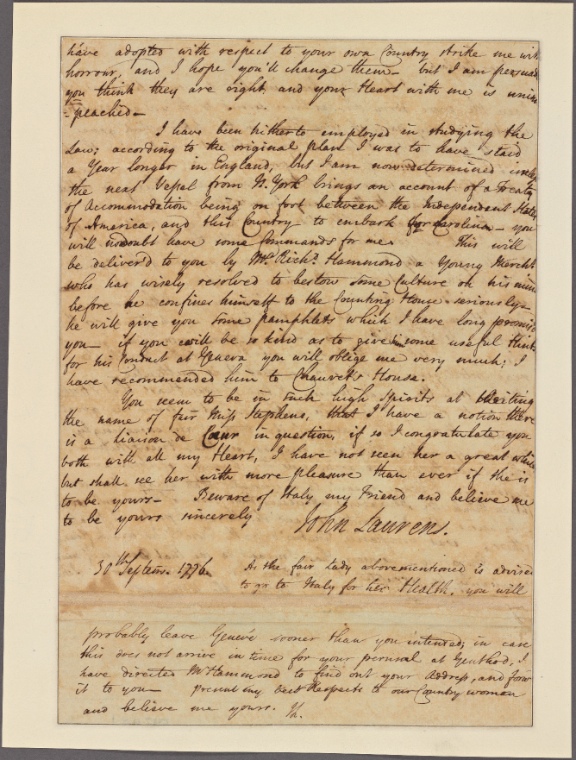 have adopted with respect to your own Country strike me with
horrour, and I hope you'll change them – but I am persua
you think they are right, and your Heart with me is unim
=peached –
I have been hitherto employed in studying the
Law; according to the original plan I was to have staid
a Year longer in England, but I am now determined unless
the next Vessel from N. York brings an account of a treaty
of Accommodation being on foot between the Independent States
of America, and this Country to embark for Carolina – you
will no doubt have some Commands for me. This will
be deliver'd to you by Mr. Richd. Hammond a Young Mercht.
who has wisely resolved to bestow some Culture on his mind
before he confines himself to the Counting House – seriously –
he will give you some pamphlets which I have long promis'd
you – if you will be so kind as to give some useful Hints
for his Conduct at Geneva you will oblige me very much; I
have recommended him to Chauvet's House.
You seem to be in such high Spirits at writing
the name of fair Miss Stephens, that I have a notion there
is a liaison de Cœur in question, if so I congratulate you
both with all my Heart, I have not seen her a great while
but shall see her with more pleasure than ever if she is
to be yours – Beware of Italy my Friend and believe me
to be yours sincerely
John Laurens.
30th Septemr. 1776. As the fair Lady abovementioned is advised
to go to Italy for her Health, you will
probably leave Genevé sooner than you intended; in case
this does not arrive in time for your perusal at Genthod, I
have directed Mr Hammond to find out your Address, and forw
it to you – present my best Respects to our Country woman
and believe me yours.